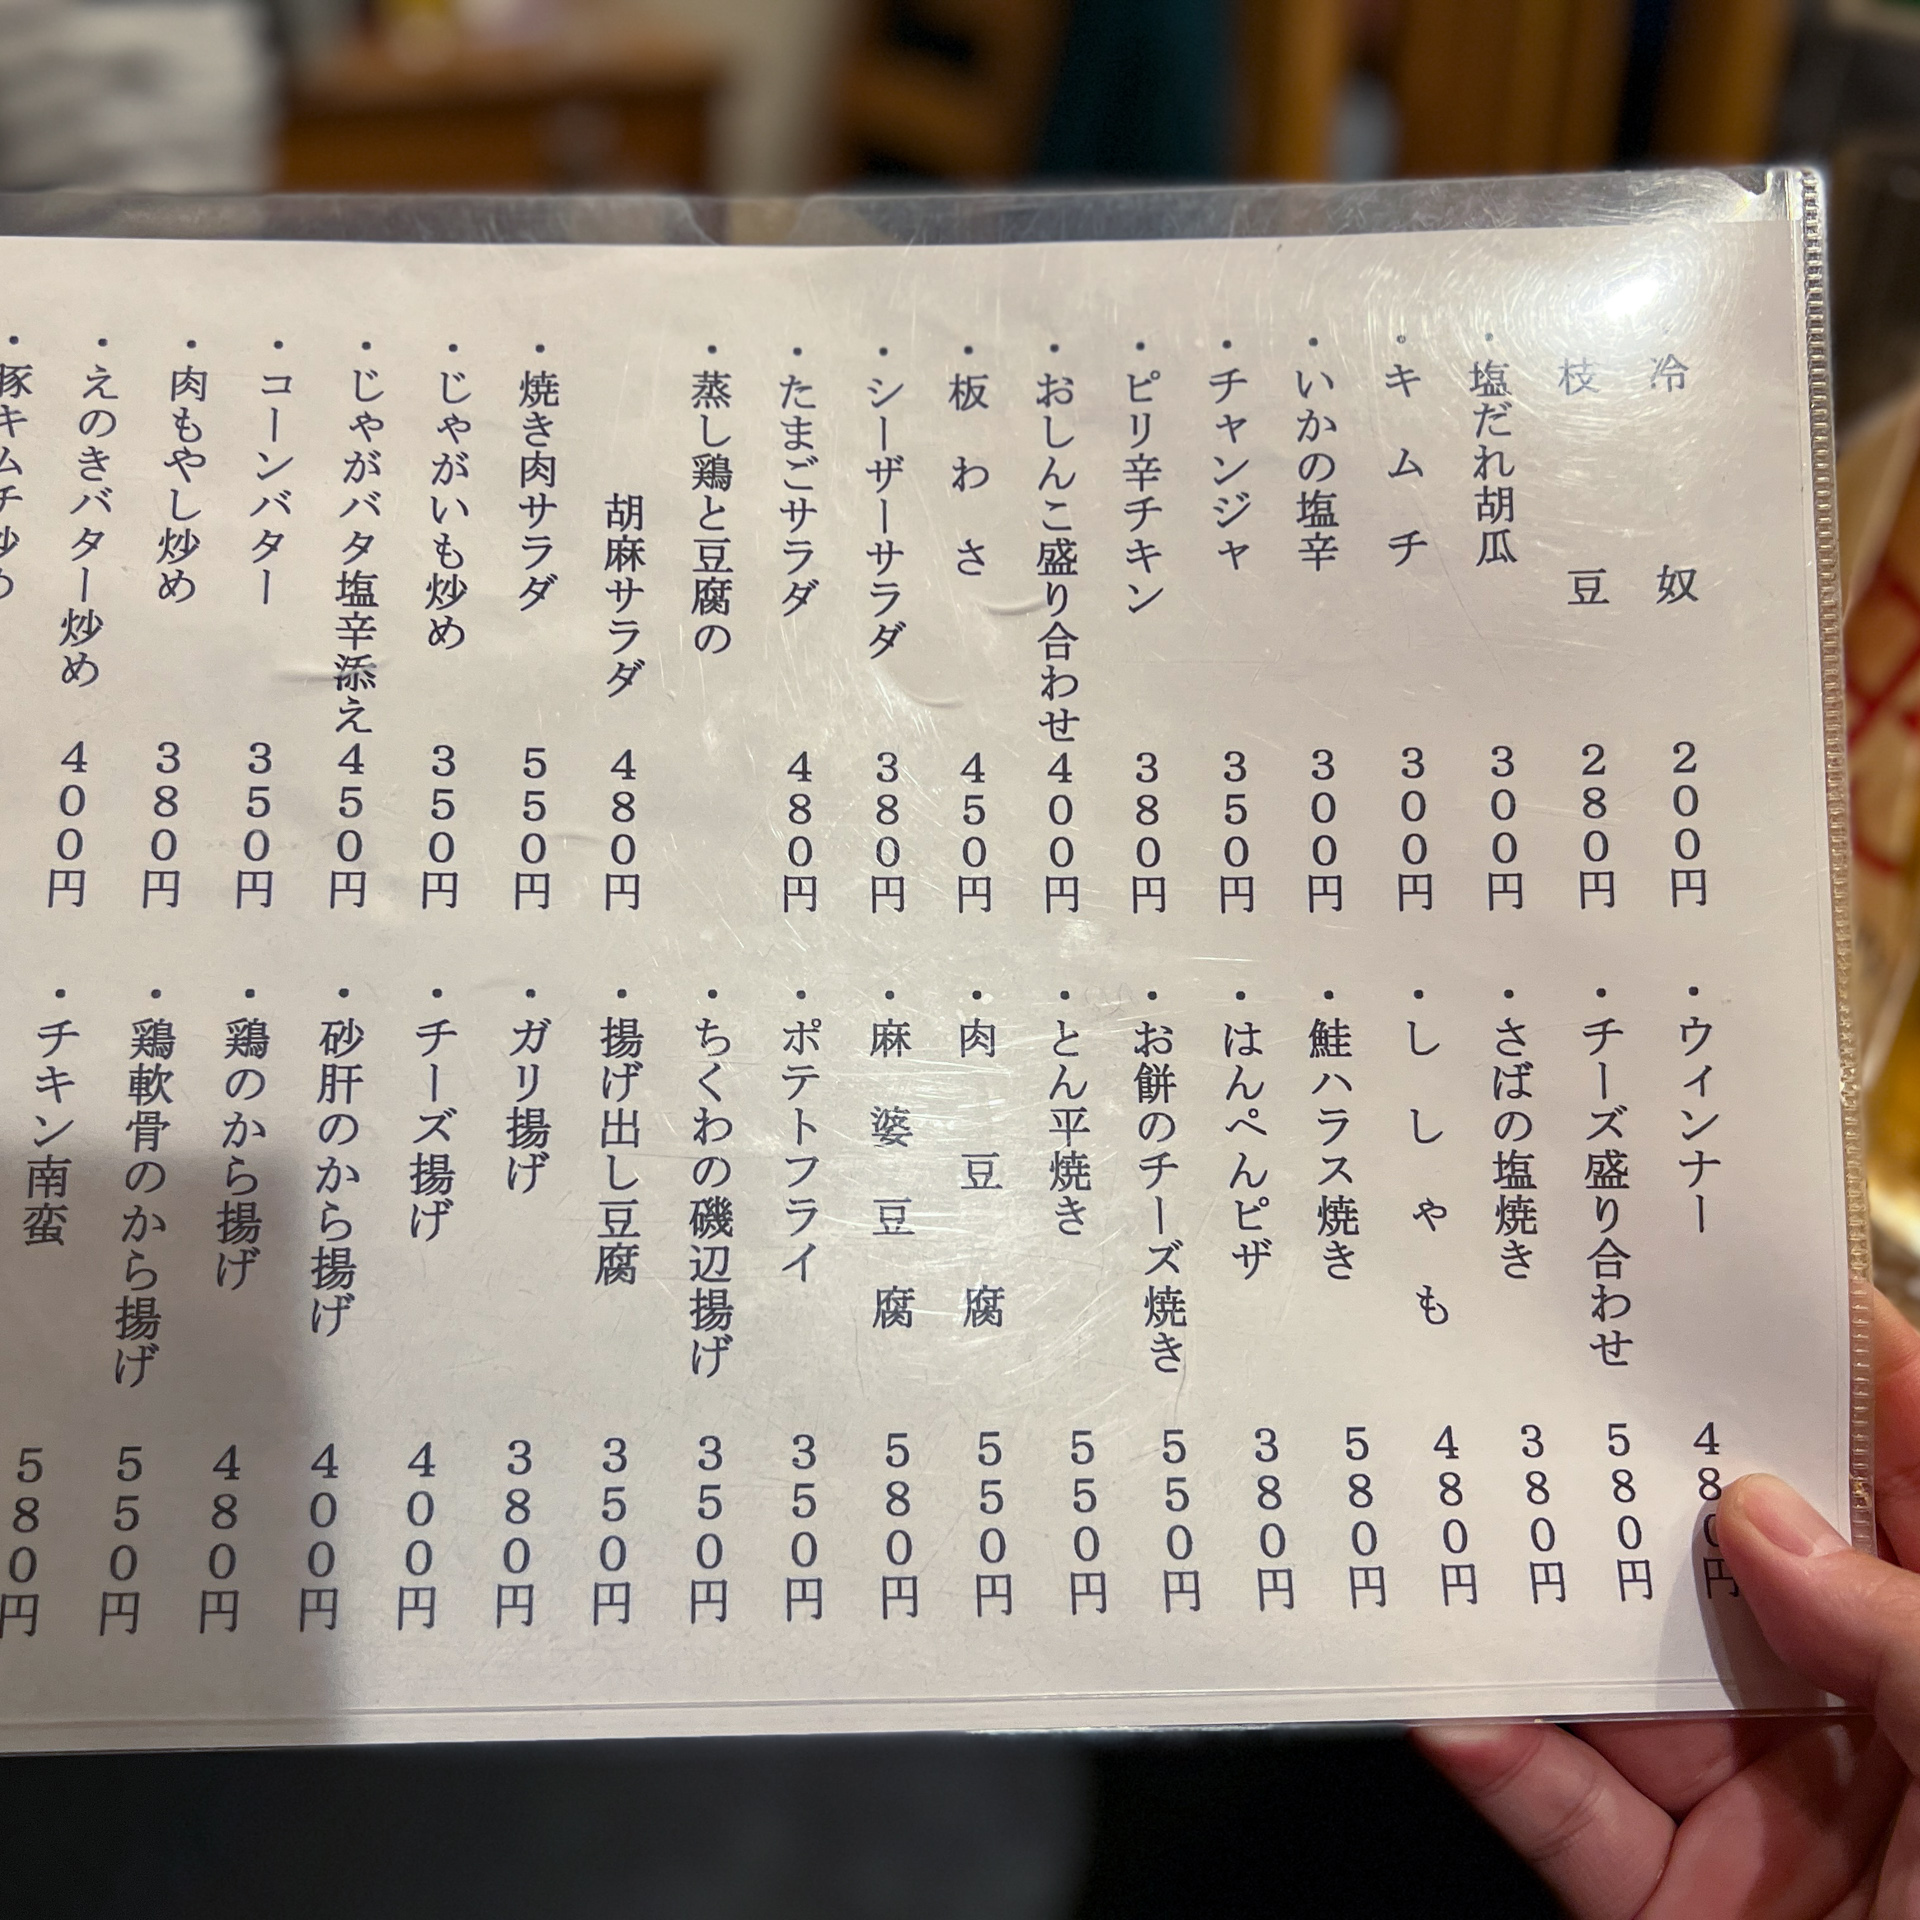 ・冷奴 200円
・枝豆 280円
・塩だれ胡瓜 300円
・キムチ 300円
・いかの塩辛 300円
・チャンジャ 350円
・ピリ辛チキン 380円
・おしんこ盛り合わせ 400円
・板わさ 450円
・シーザーサラダ 380円
・たまごサラダ 480円
・蒸し鶏と豆腐の
胡麻サラダ 480円
・焼き肉サラダ 550円
・じゃがいも炒め 350円
・じゃがバタ塩辛添え 450円
・コーンバター 350円
・肉もやし炒め 380円
・えのきバター炒め 400円
・豚キムチ炒め
・ウィンナー 480円
・チーズ盛り合わせ 580円
・さばの塩焼き 380円
・ししゃも 480円
・鮭ハラス焼き 580円
・はんぺんピザ 380円
・お餅のチーズ焼き 550円
・とん平焼き 550円
・肉豆腐 550円
・麻婆豆腐 580円
・ポテトフライ 350円
・ちくわの磯辺揚げ 350円
・揚げ出し豆腐 350円
・ガリ揚げ 380円
・チーズ揚げ 400円
・砂肝のから揚げ 400円
・鶏のから揚げ 480円
・鶏軟骨のから揚げ 550円
・チキン南蛮 580円